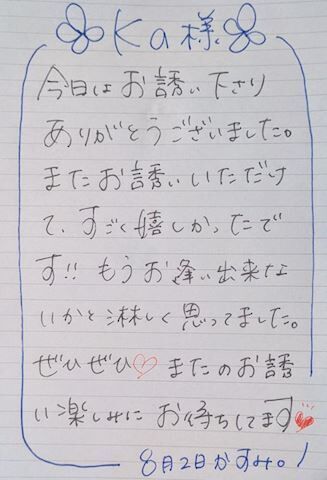 Ka様
今日はお誘い下さり
ありがとうございました。
またお誘いいただけ
て、すごく嬉しかったで
す!! もうお逢い出来な
いかと淋しく思ってました。
ぜひぜひ♡またのお誘
い楽しみにお待ちしてます♥
8月2日かすみ。